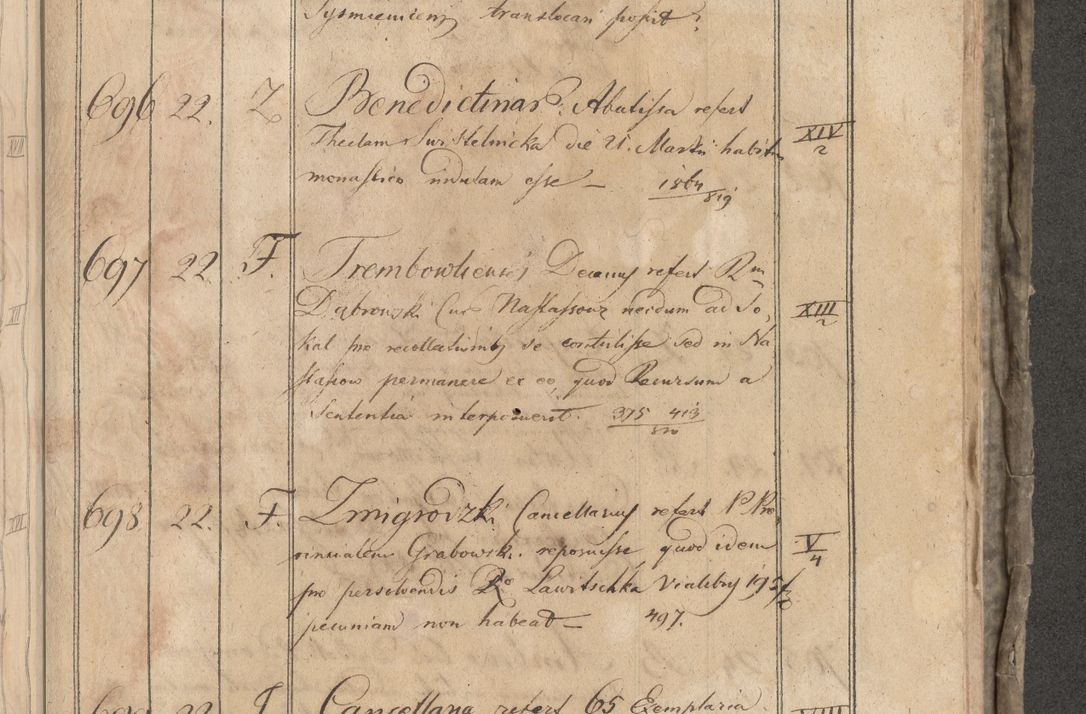 translocari
696 22. Benedictinar: Abatissa refert XIV/2
Theclam Swistelnicka die 21. Martii habitu
monastico indutam esse – 1864/819
697 22. F. Trembowliensis Decanus refert Rm
Dąbrowski Cur Nastassow necdum ad So, XIII/2
kal pro recollectionib se contulisse sed in Na
stasow permanere ex eo, quod Recursum a
Sententia interposuerit. 375 413
698 22. F. Zmigrodzki Cancellarius refert P. Pro,
vincialem Grabowski reposuisse quod idem V/4
pro persolvendis Ro Lawitschka Vialibus
pecuniam non habeat – 497.
22 Cancellaria refert 65 Exemplaria